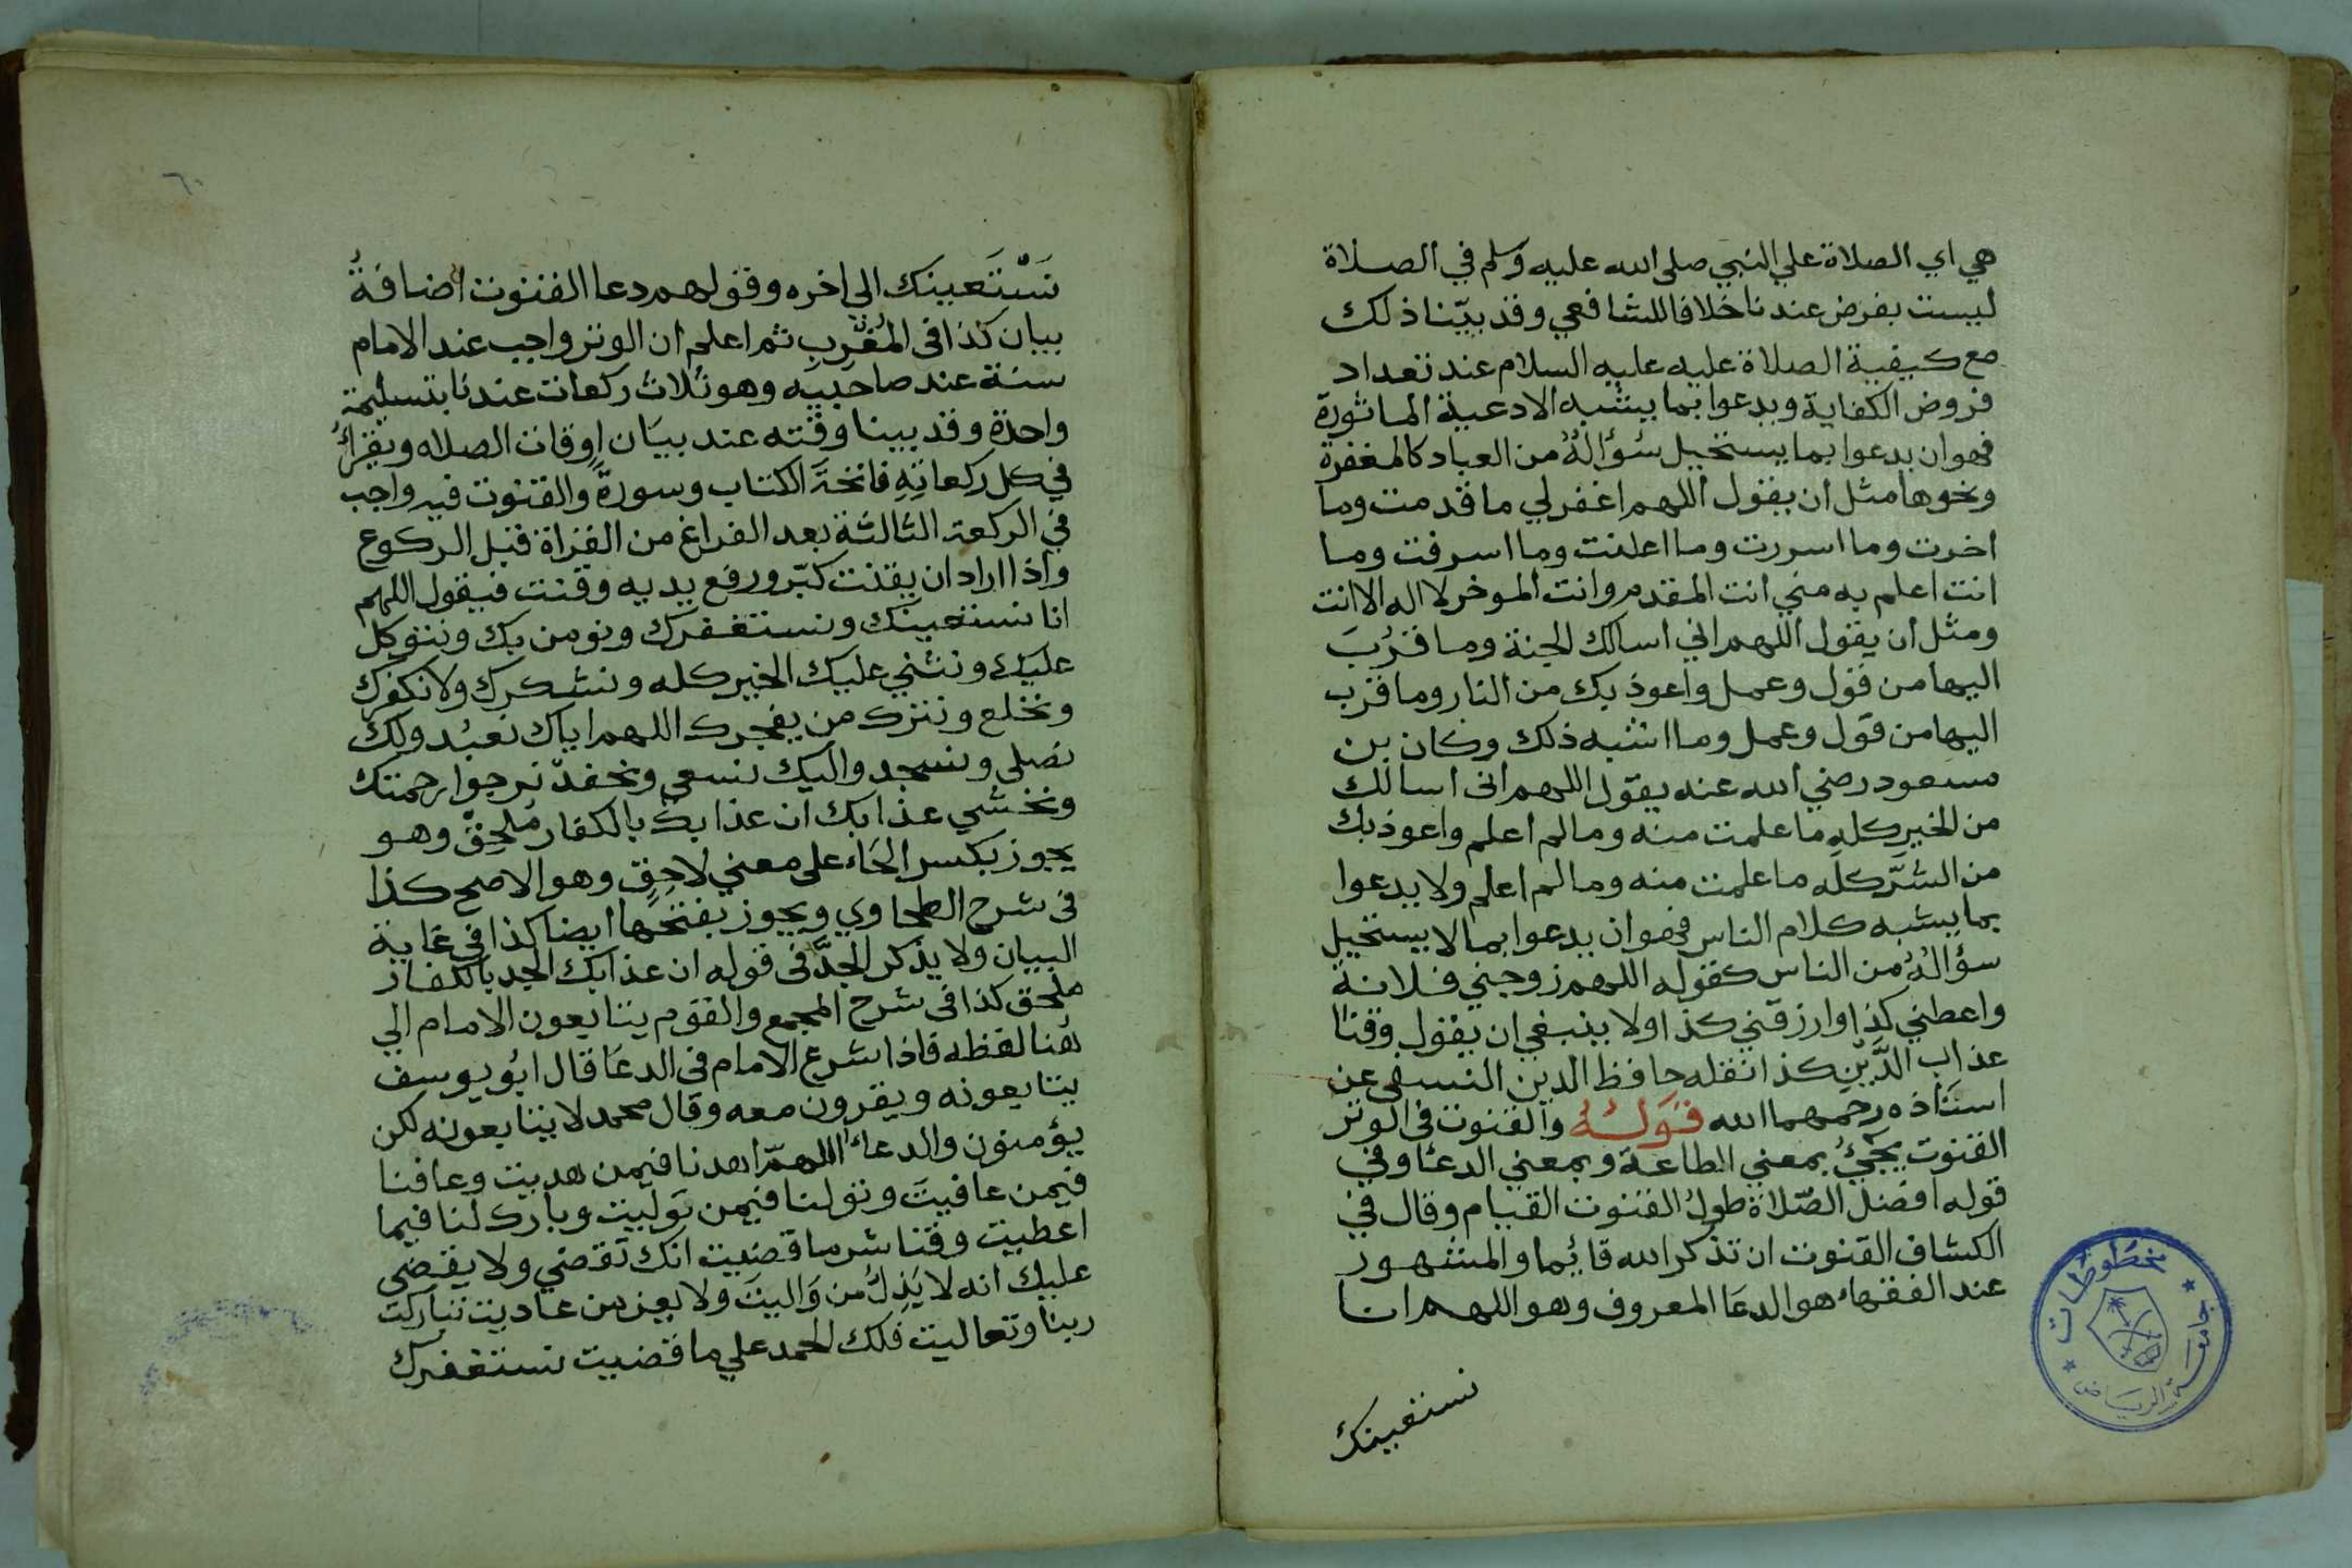 هي اي الصلاة علي النبي صلى الله عليه وسلم في الصلاة
ليست بفرض عندنا خلافا للشافعي وقد بيّنا ذلك
مع كيفية الصلاة عليه عليه السلام عند تعداد
فروض الكفاية ويدعوا بما يشبه الادعية الماثورة
فهوان يدعوا بما يستحيل سُؤالُهُ من العباد كالمغفرة
ونحوها مثل ان يقول اللهم اغفرلي ما قدمت وما
اخرت وما اسررت وما اعلنت وما اسرفت وما
انت اعلم به مني انت المقدم وانت الموخر لا اله الا انت
ومثل ان يقول اللهم اني اسالك الجنة وما قرُبَ
اليها من قول وعمل واعوذ بك من النار وما قرب
اليها من قول وعمل وما اشبه ذلك وكان بن
مسعود رضي الله عنه يقول اللهم انى اسالك
من الخير كله ما علمت منه وما لم اعلم واعوذ بك
من الشرّ كله ما علمت منه وما لم اعلم ولا يدعوا
بما يشبه كلام الناس فهوان يدعوا بما لا يستحيل
سؤالُهُ من الناس كقوله اللهم زوجني فلانة
واعطني كذا وارزقني كذا ولا ينبغي ان يقول وقنا
عذاب الدَّيْنِ كذا نقله حافظ الدين النسفي عن
استاذه رحمهما الله قَوْلُهُ والقنوت في الوتر
القنوت يجيُ بمعني الطاعة وبمعني الدعا وفي
قوله افضل الصّلاة طولُ القنوت القيام وقال في
الكشاف القنوت ان تذكر الله قايُما والمشهور
عند الفقهاء هو الدعا المعروف وهو اللهم انا
نستعينك
٦٠
نَسْتَعينك الي اخره وقولهم دعا القنوت اضافةُ
بيان كذا فى المُغْرِبِ ثم اعلم ان الوتر واجب عند الامام
سنة عند صاحبيه وهو ثلاث ركعات عندنا بتسليمة
واحدة وقد بينا وقته عند بيَان اوقات الصلاه ويقرأ
في كل ركعاتِهِ فاتحةَ الكتاب وسورةً والقنوت فيه واجب
في الركعة الثالثة بعد الفراغ من القراة قبل الركوع
واذا اراد ان يقنت كبّر ورفع يديه وقنت فيقول اللهم
انا نستعينك ونستغفرك ونومن بك ونتوكل
عليك ونثني عليك الخير كله ونشكرك ولا نكفرك
ونخلع ونترك من يفجرك اللهم اياك نعبُد ولك
نصلى ونسجد واليك نسعى ونحفد نرجوا رحمتك
ونخشي عذابك ان عذابك بالكفار مُلحِق وهو
يجوز بكسر الحَاء على معني لاحِقٍ وهو الاصح كذا
فى شرح الطحاوي ويجوز بفتحها ايضا كذا في غاية
البيان ولا يذكر الجدَّ فى قوله ان عذابك الجد بالكفار
ملحق كذا فى شرح المجمع والقوم يتابعون الامام الي
هُنا لفظه فاذا شرع الامام فى الدعَا قال ابُو يوسف
يتابعونه ويقرون معه وقال محمد لا يتابعونه لكن
يؤمنون والدعاءُ اللهمّ اهدنا فيمن هديت وعافنا
فيمن عافيتَ وتولنا فيمن تولّيت وبارك لنا فيما
اعطيت وقنا شرما قضيت انك تقضي ولا يقضى
عليك انه لا يَذِلُ من وَاليتَ ولا يعز من عاديت تباركت
ربنا وتعاليت فلك الحمد علي ما قضيت نستغفرك
مخطوطات
جامعة الرياض